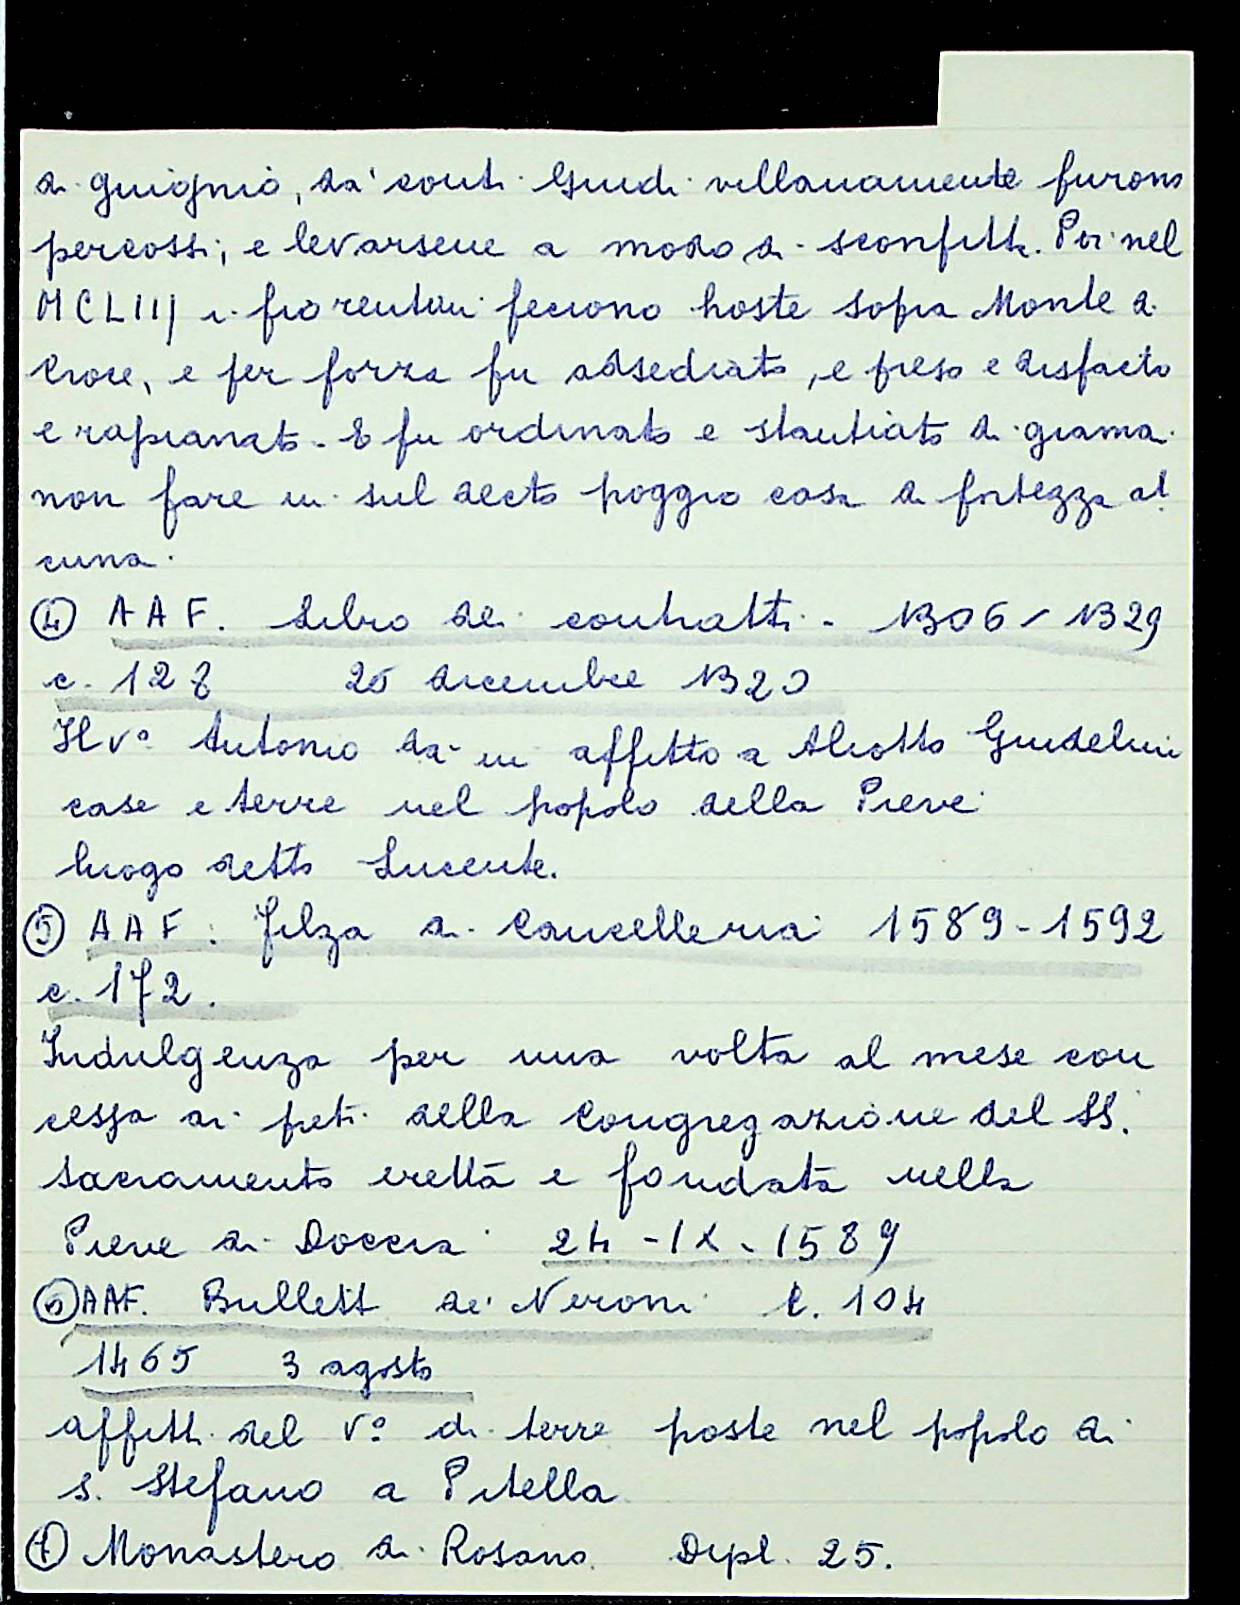 di giugnio, da' conti Guidi villanamente furono
percossi; e levarsene a modo di sconfitti. Poi nel
MCLIIJ i fiorentini feciono hoste sopra Monte di
Croce, e per forza fu adsediato, e preso e disfacto
e rapianato. E fu ordinato e stantiato di giamai
non fare in sul decto poggio cosa di fortezza al
cuna.
④ AAF. Libro dei contratti - 1306-1329
c. 128 20 dicembre 1320
Il v° Antonio dà in affitto a Aliotto Guidelini
case e terre nel popolo della Pieve
luogo detto Lucente.
⑤ AAF. Filza di Cancelleria 1589-1592
c. 172.
Indulgenza per una volta al mese con
cessa ai preti della Congregazione del SS.
Sacramento eretta e fondata nella
Pieve di Doccia 24-IX-1589
⑥ AAF. Bullett. dei Neroni C. 104
1465 3 agosto
affitti del V° di terre poste nel popolo di
S. Stefano a Pitella
⑦ Monastero di Rosano. Dipl. 25.